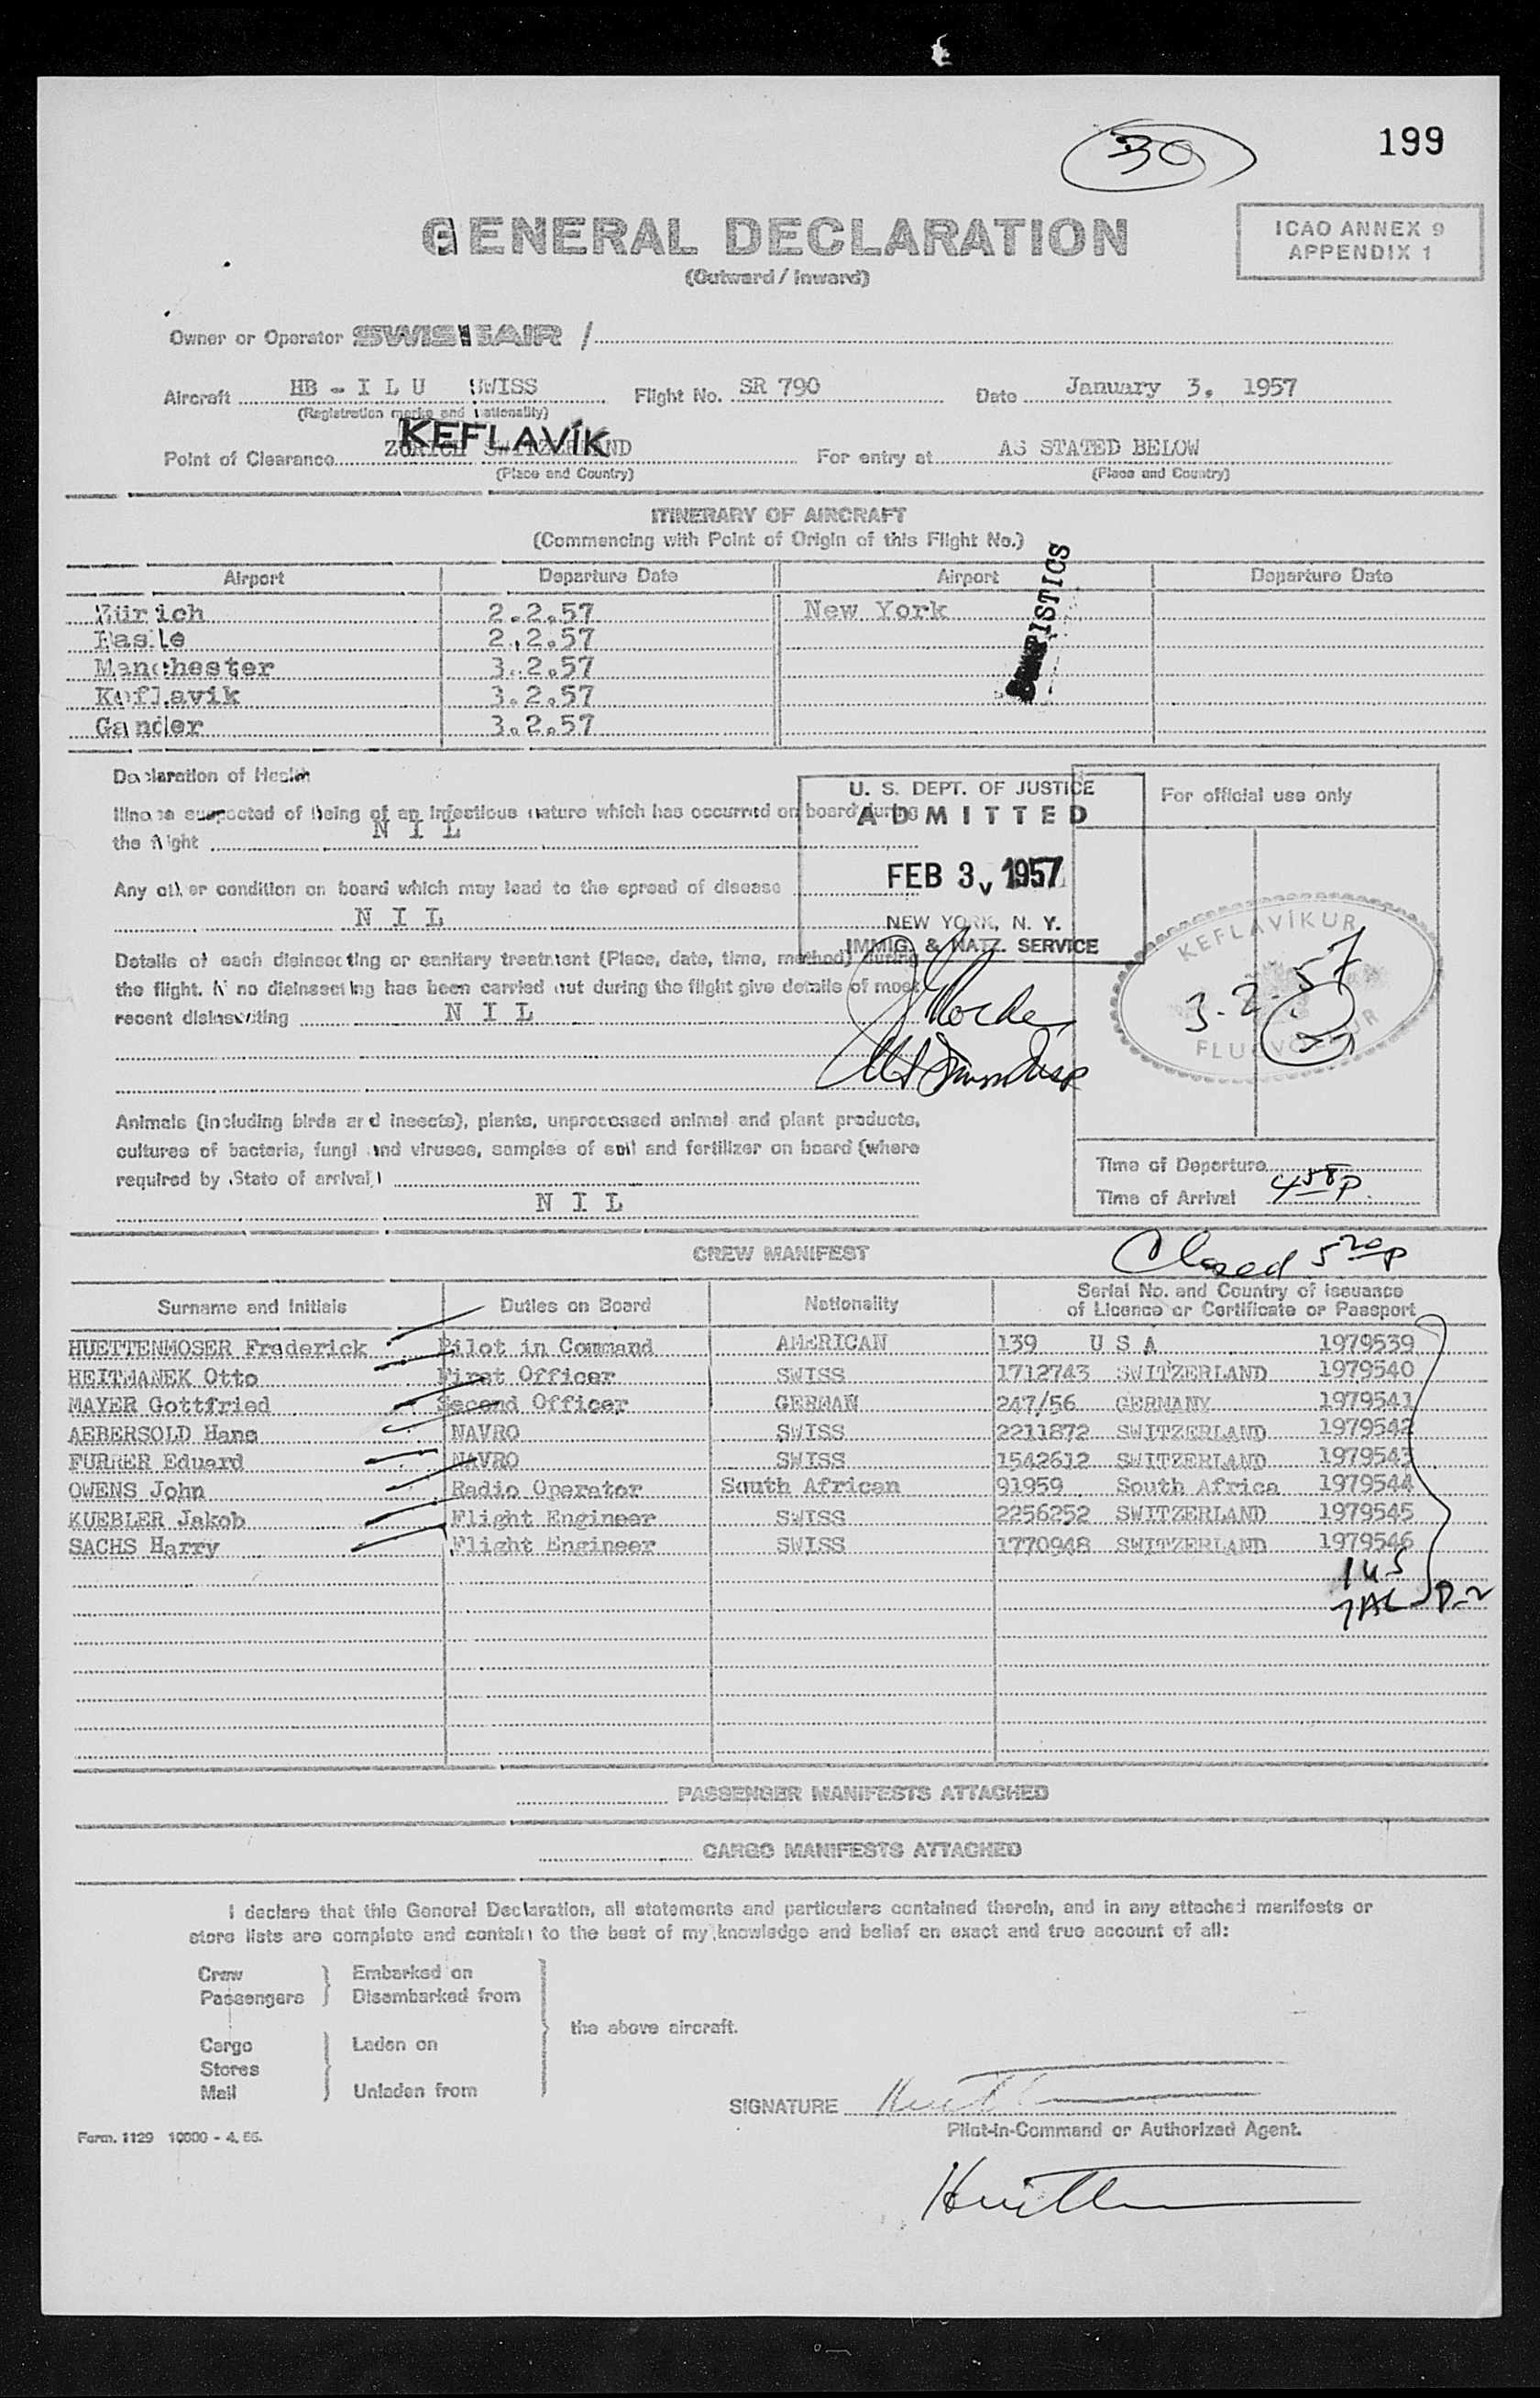 30
199
GENERAL DECLARATION
(Outward / Inward)
ICAO ANNEX 9
APPENDIX 1
Owner or Operator SWISSAIR /
Aircraft HB - I L U SWISS Flight No. SR 790 Date January 3, 1957
(Registration marks and nationality)
KEFLAVÍK
Point of Clearance ZÜRICH SWITZERLAND For entry at AS STATED BELOW
(Place and Country) (Place and Country)
ITINERARY OF AIRCRAFT
(Commencing with Point of Origin of this Flight No.)
Airport Departure Date Airport Departure Date
Zürich 2.2.57 New York
Basle 2.2.57
Manchester 3.2.57
Keflavik 3.2.57
Gander 3.2.57
Declaration of Health
Illness suspected of being of an infectious nature which has occurred on board during
the flight N I L
Any other condition on board which may lead to the spread of disease
N I L
Details of each disinsecting or sanitary treatment (Place, date, time, method) during
the flight. If no disinsecting has been carried out during the flight give details of most
recent disinsecting N I L
Animals (including birds and insects), plants, unprocessed animal and plant products,
cultures of bacteria, fungi and viruses, samples of soil and fertilizer on board (where
required by State of arrival)
N I L
U. S. DEPT. OF JUSTICE
A D M I T T E D
FEB 3, 1957
NEW YORK, N. Y.
IMMIG. & NATZ. SERVICE
For official use only
KEFLAVÍKUR
3.2.57
Time of Departure
Time of Arrival 4 58 P
Closed 5 20 P
CREW MANIFEST
Surname and Initials Duties on Board Nationality Serial No. and Country of Issuance
of Licence or Certificate or Passport
HUETTENMOSER Frederick Pilot in Command AMERICAN 139 U S A 1979539
HEITMANEK Otto First Officer SWISS 1712743 SWITZERLAND 1979540
MAYER Gottfried Second Officer GERMAN 247/56 GERMANY 1979541
AEBERSOLD Hans NAVRO SWISS 2211872 SWITZERLAND 1979542
FURRER Eduard NAVRO SWISS 1542612 SWITZERLAND 1979543
OWENS John Radio Operator South African 91959 South Africa 1979544
KUEBLER Jakob Flight Engineer SWISS 2256252 SWITZERLAND 1979545
SACHS Harry Flight Engineer SWISS 1770948 SWITZERLAND 1979546
PASSENGER MANIFESTS ATTACHED
CARGO MANIFESTS ATTACHED
I declare that this General Declaration, all statements and particulars contained therein, and in any attached manifests or
store lists are complete and contain to the best of my knowledge and belief an exact and true account of all:
Crew Embarked on
Passengers Disembarked from
the above aircraft.
Cargo Laden on
Stores
Mail Unladen from
SIGNATURE
Pilot-in-Command or Authorized Agent.
Form. 1129 10000 - 4. 56.